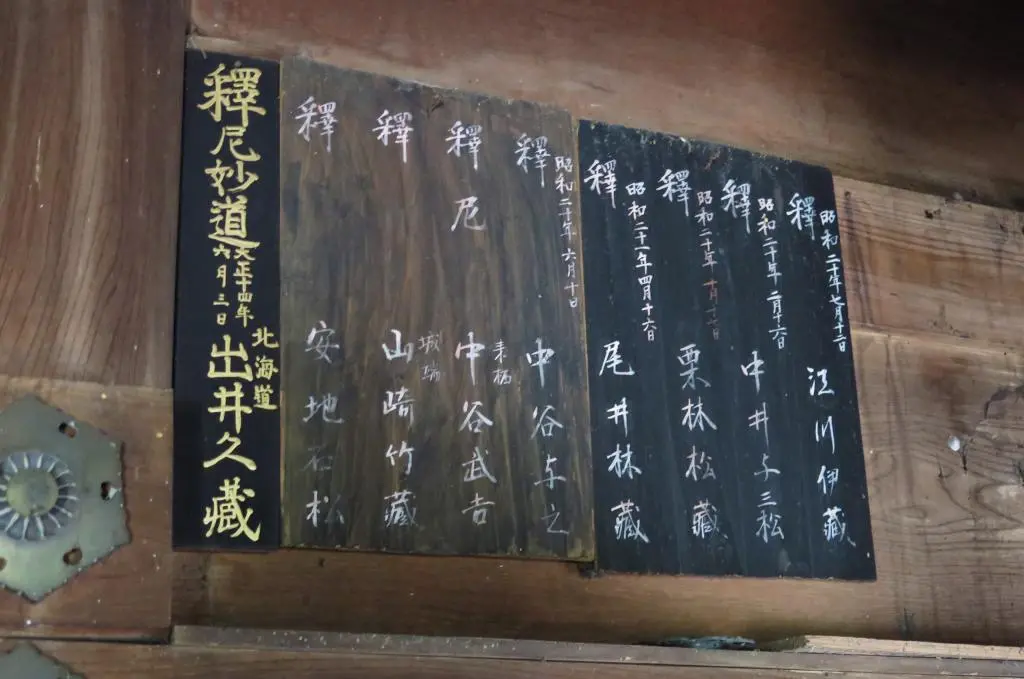 昭和二十年七月十二日
釋 江川伊藏
昭和二十年二月十六日
釋 中井与三松
昭和二十年
釋 栗林松藏
昭和二十一年四月十六日
釋 尾井林藏
昭和二十年六月十日
釋 中谷与之
釋尼 中谷武吉
城端
釋 山崎竹藏
釋 安地石松
釋尼妙道
大正十四年
六月三日
北海道
出井久藏